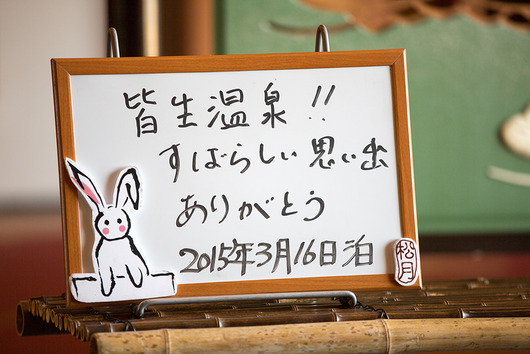 皆生温泉!!
すばらしい思い出
ありがとう
2015年3月16日泊
松月